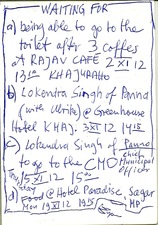 WAITING FOR
a) being able to go to the
toilet after 3 coffees
at RAJAV CAFE 2 XI 12
13:00 KHAJURAHO
b) Lokendra Singh of Panna
(with Ulrike) @ Greenhouse
Hotel KHAJ. 3 XI 12 14:15
c) Lokendra Singh of Panna
to go to the CMO
Chief
Municipal
Officer
5 XI 12 15
d) Food @ Hotel Paradise Sagar
MP
Mon 19 XI 12 19:15